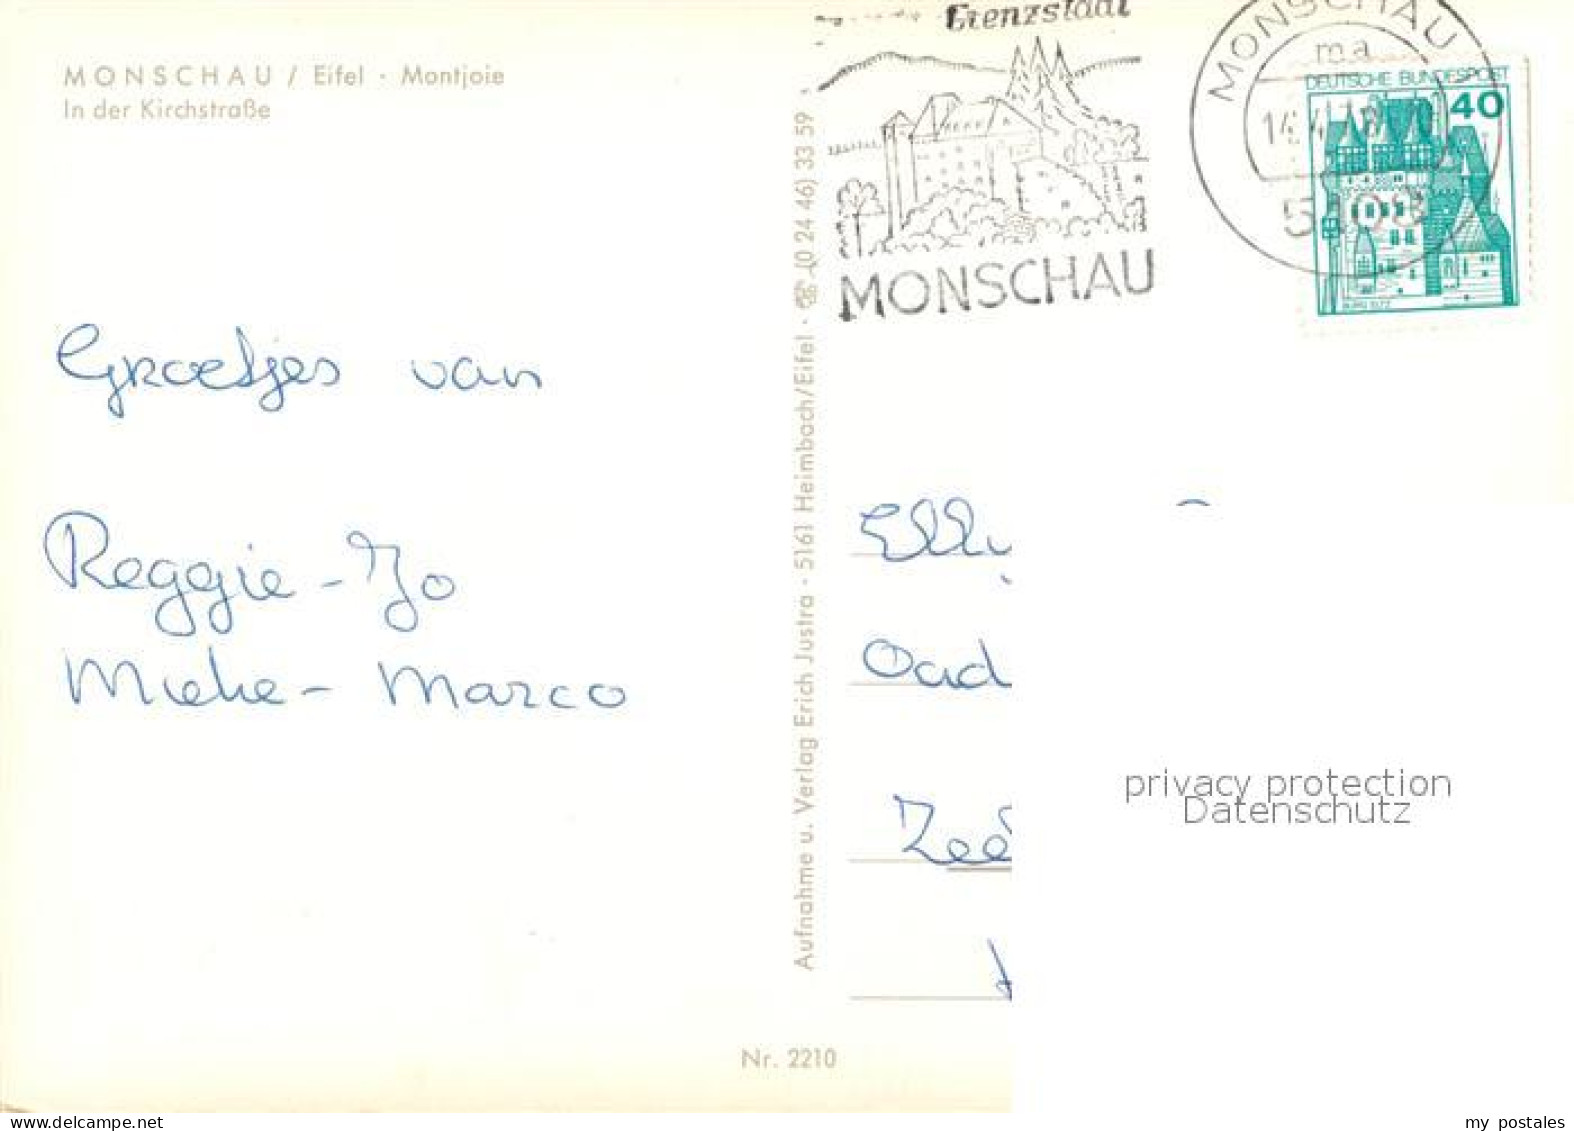 MONSCHAU / Eifel · Montjoie
In der Kirchstraße
Groetjes van
Reggie - Jo
Mieke - Marco
Aufnahme u. Verlag Erich Justra · 5161 Heimbach/Eifel · ☏ (0 24 46) 33 59
Nr. 2210
Grenzstadt
MONSCHAU
MONSCHAU
ma
5108
DEUTSCHE BUNDESPOST
40
BURG ELTZ
Oud
Zee
privacy protection
Datenschutz
delcampe.net
my_postales